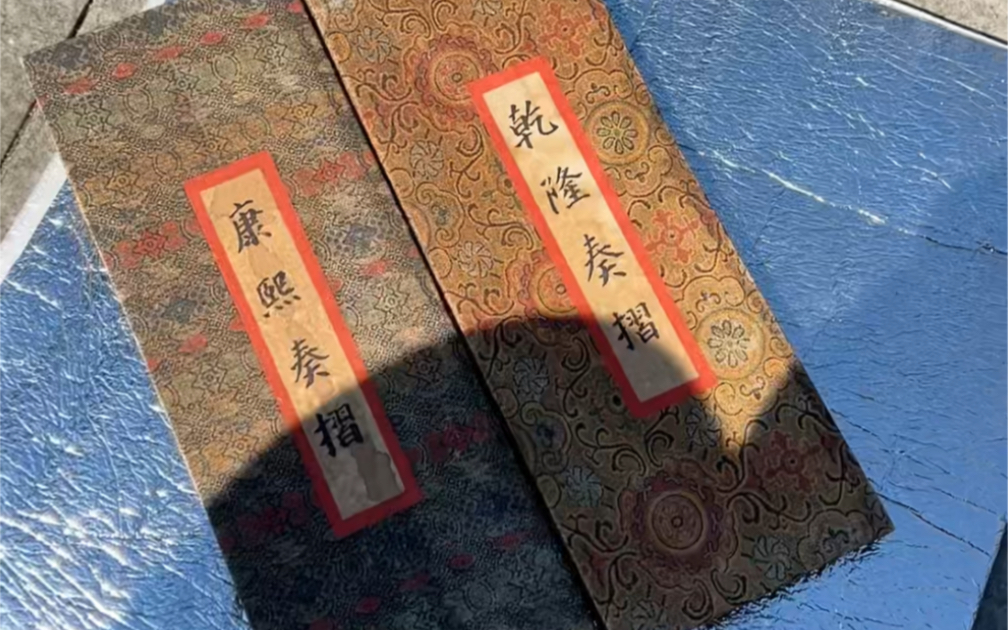 康熙奏摺
乾隆奏摺